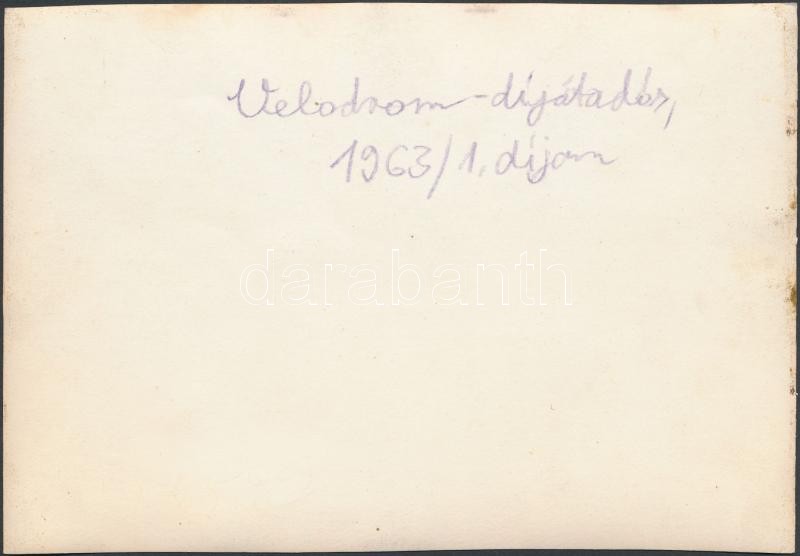 Velodrom-díjátadás,
1963/1. díjam
darabanth